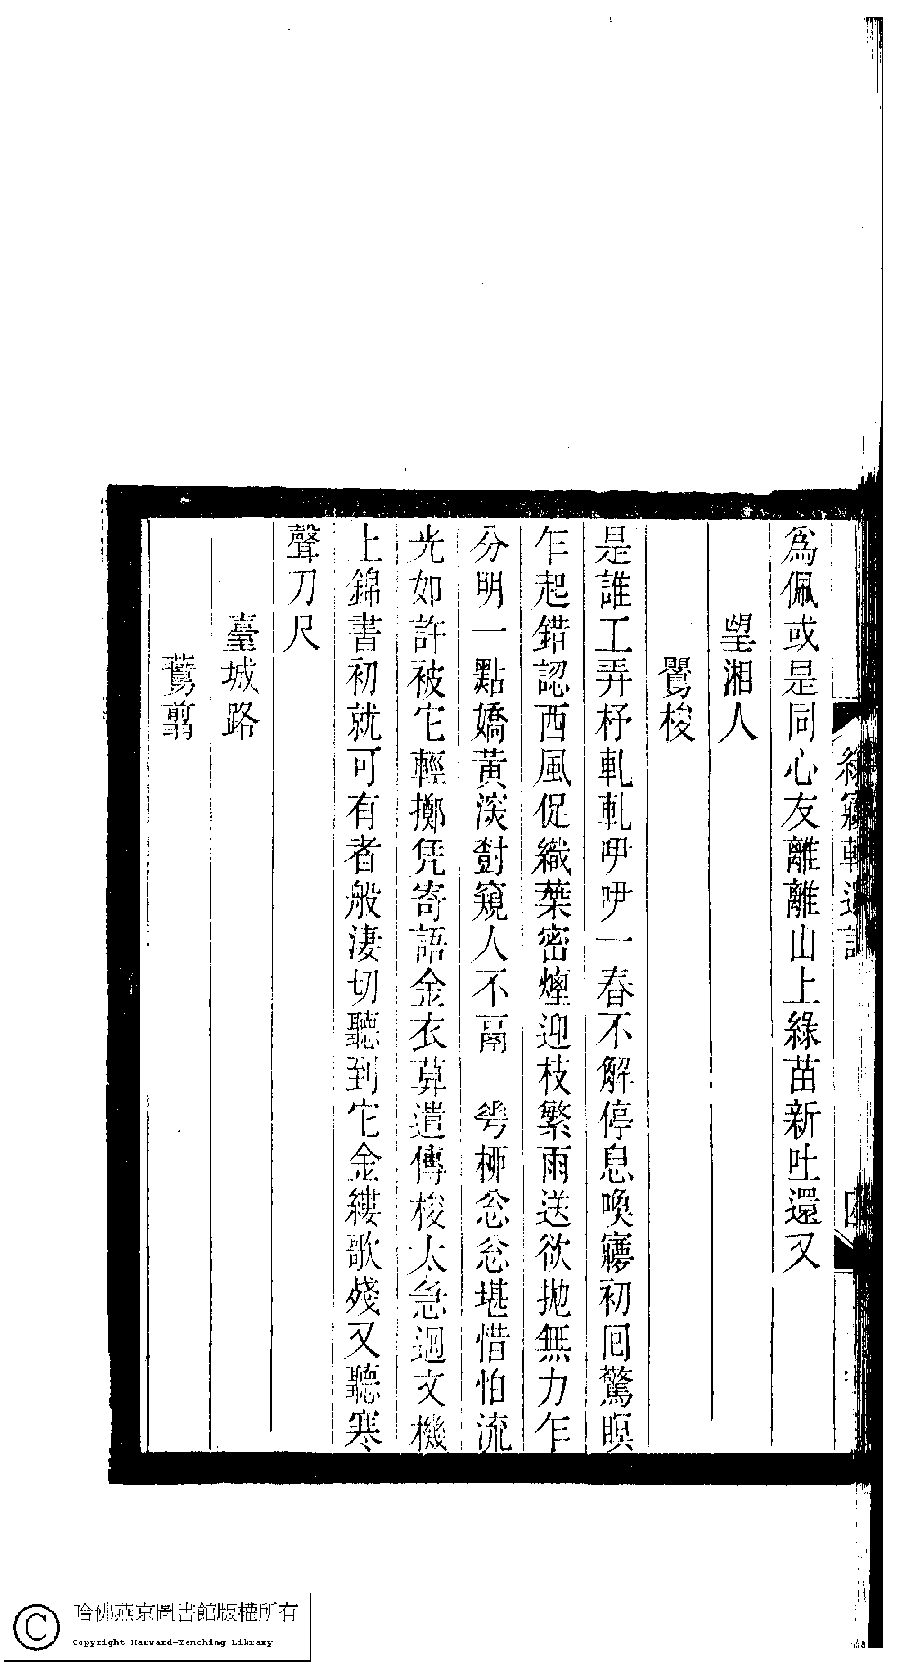 爲佩或是同心友離離山上綠苗新吐還又
望湘人
鶯梭
是誰工弄杼軋軋咿咿一春不解停息喚寤初回驚瞑
乍起錯認西風促織葉密煙迎枝繁雨送欲拋無力乍
分明一點嬌黃淡對窺人不鬲 芳桺忩忩堪惜怕流
光如許被它輕擲凭寄語金衣莫遣傳梭太急迴文機
上錦書初就可有者般淒切聽到它金縷歌殘又聽寒
聲刀尺
臺城路
鷰翦
四
哈佛燕京圖書館版權所有
Copyright Harvard-Yenching Library